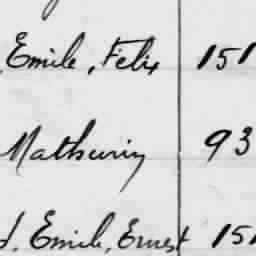 Emile, Felix 151
Mathurin 93
d. Emile, Ernest 151